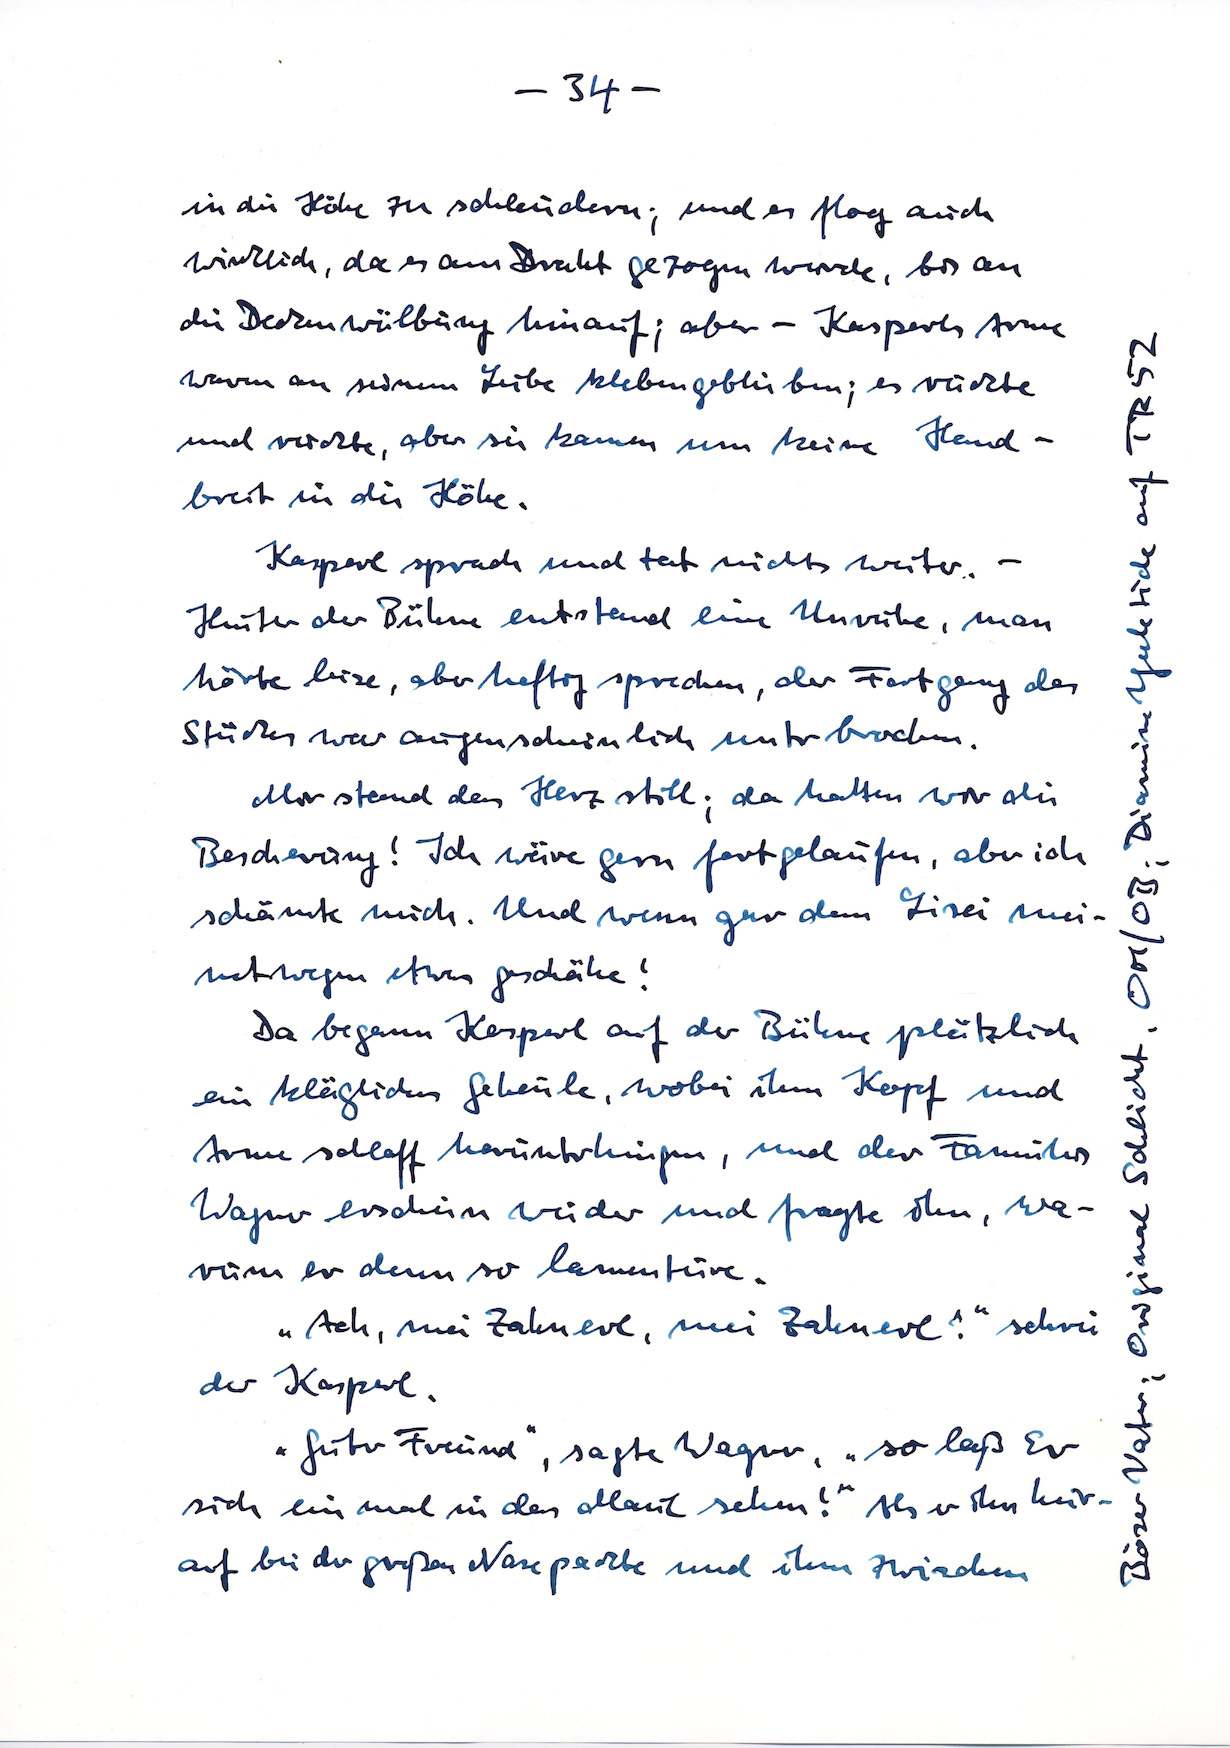 – 34 –
in die Höhe zu schleudern; und es flog auch
wirklich, da es am Draht gezogen wurde, bis an
die Deckenwölbung hinauf; aber – Kasperls Arme
waren an seinem Leibe klebengeblieben; es ruckte
und ruckte, aber sie kamen um keine Hand-
breit in die Höhe.
Kasperl sprach und tat nichts weiter. –
Hinter der Bühne entstand eine Unruhe, man
hörte leise, aber heftig sprechen, der Fortgang des
Stückes war augenscheinlich unterbrochen.
Mir stand das Herz still; da hatten wir die
Bescherung! Ich wäre gern fortgelaufen, aber ich
schämte mich. Und wenn gar dem Lisei mei-
netwegen etwas geschähe!
Da begann Kasperl auf der Bühne plötzlich
ein klägliches Geheule, wobei ihm Kopf und
Arme schlaff herunterhingen, und der Famulus
Wagner erschien wieder und fragte ihn, wa-
rum er denn so lamentiere.
„Ach, mei Zahnerl, mei Zahnerl!“ schrie
der Kasperl.
„Guter Freund“, sagte Wagner, „so laß Er
sich einmal in das Maul sehen!“ Als er ihn hier-
auf bei der großen Nase packte und ihm zwischen
Böser Vater; Original Schlicht, OM/OB; Diamine Yuletide auf TR 52